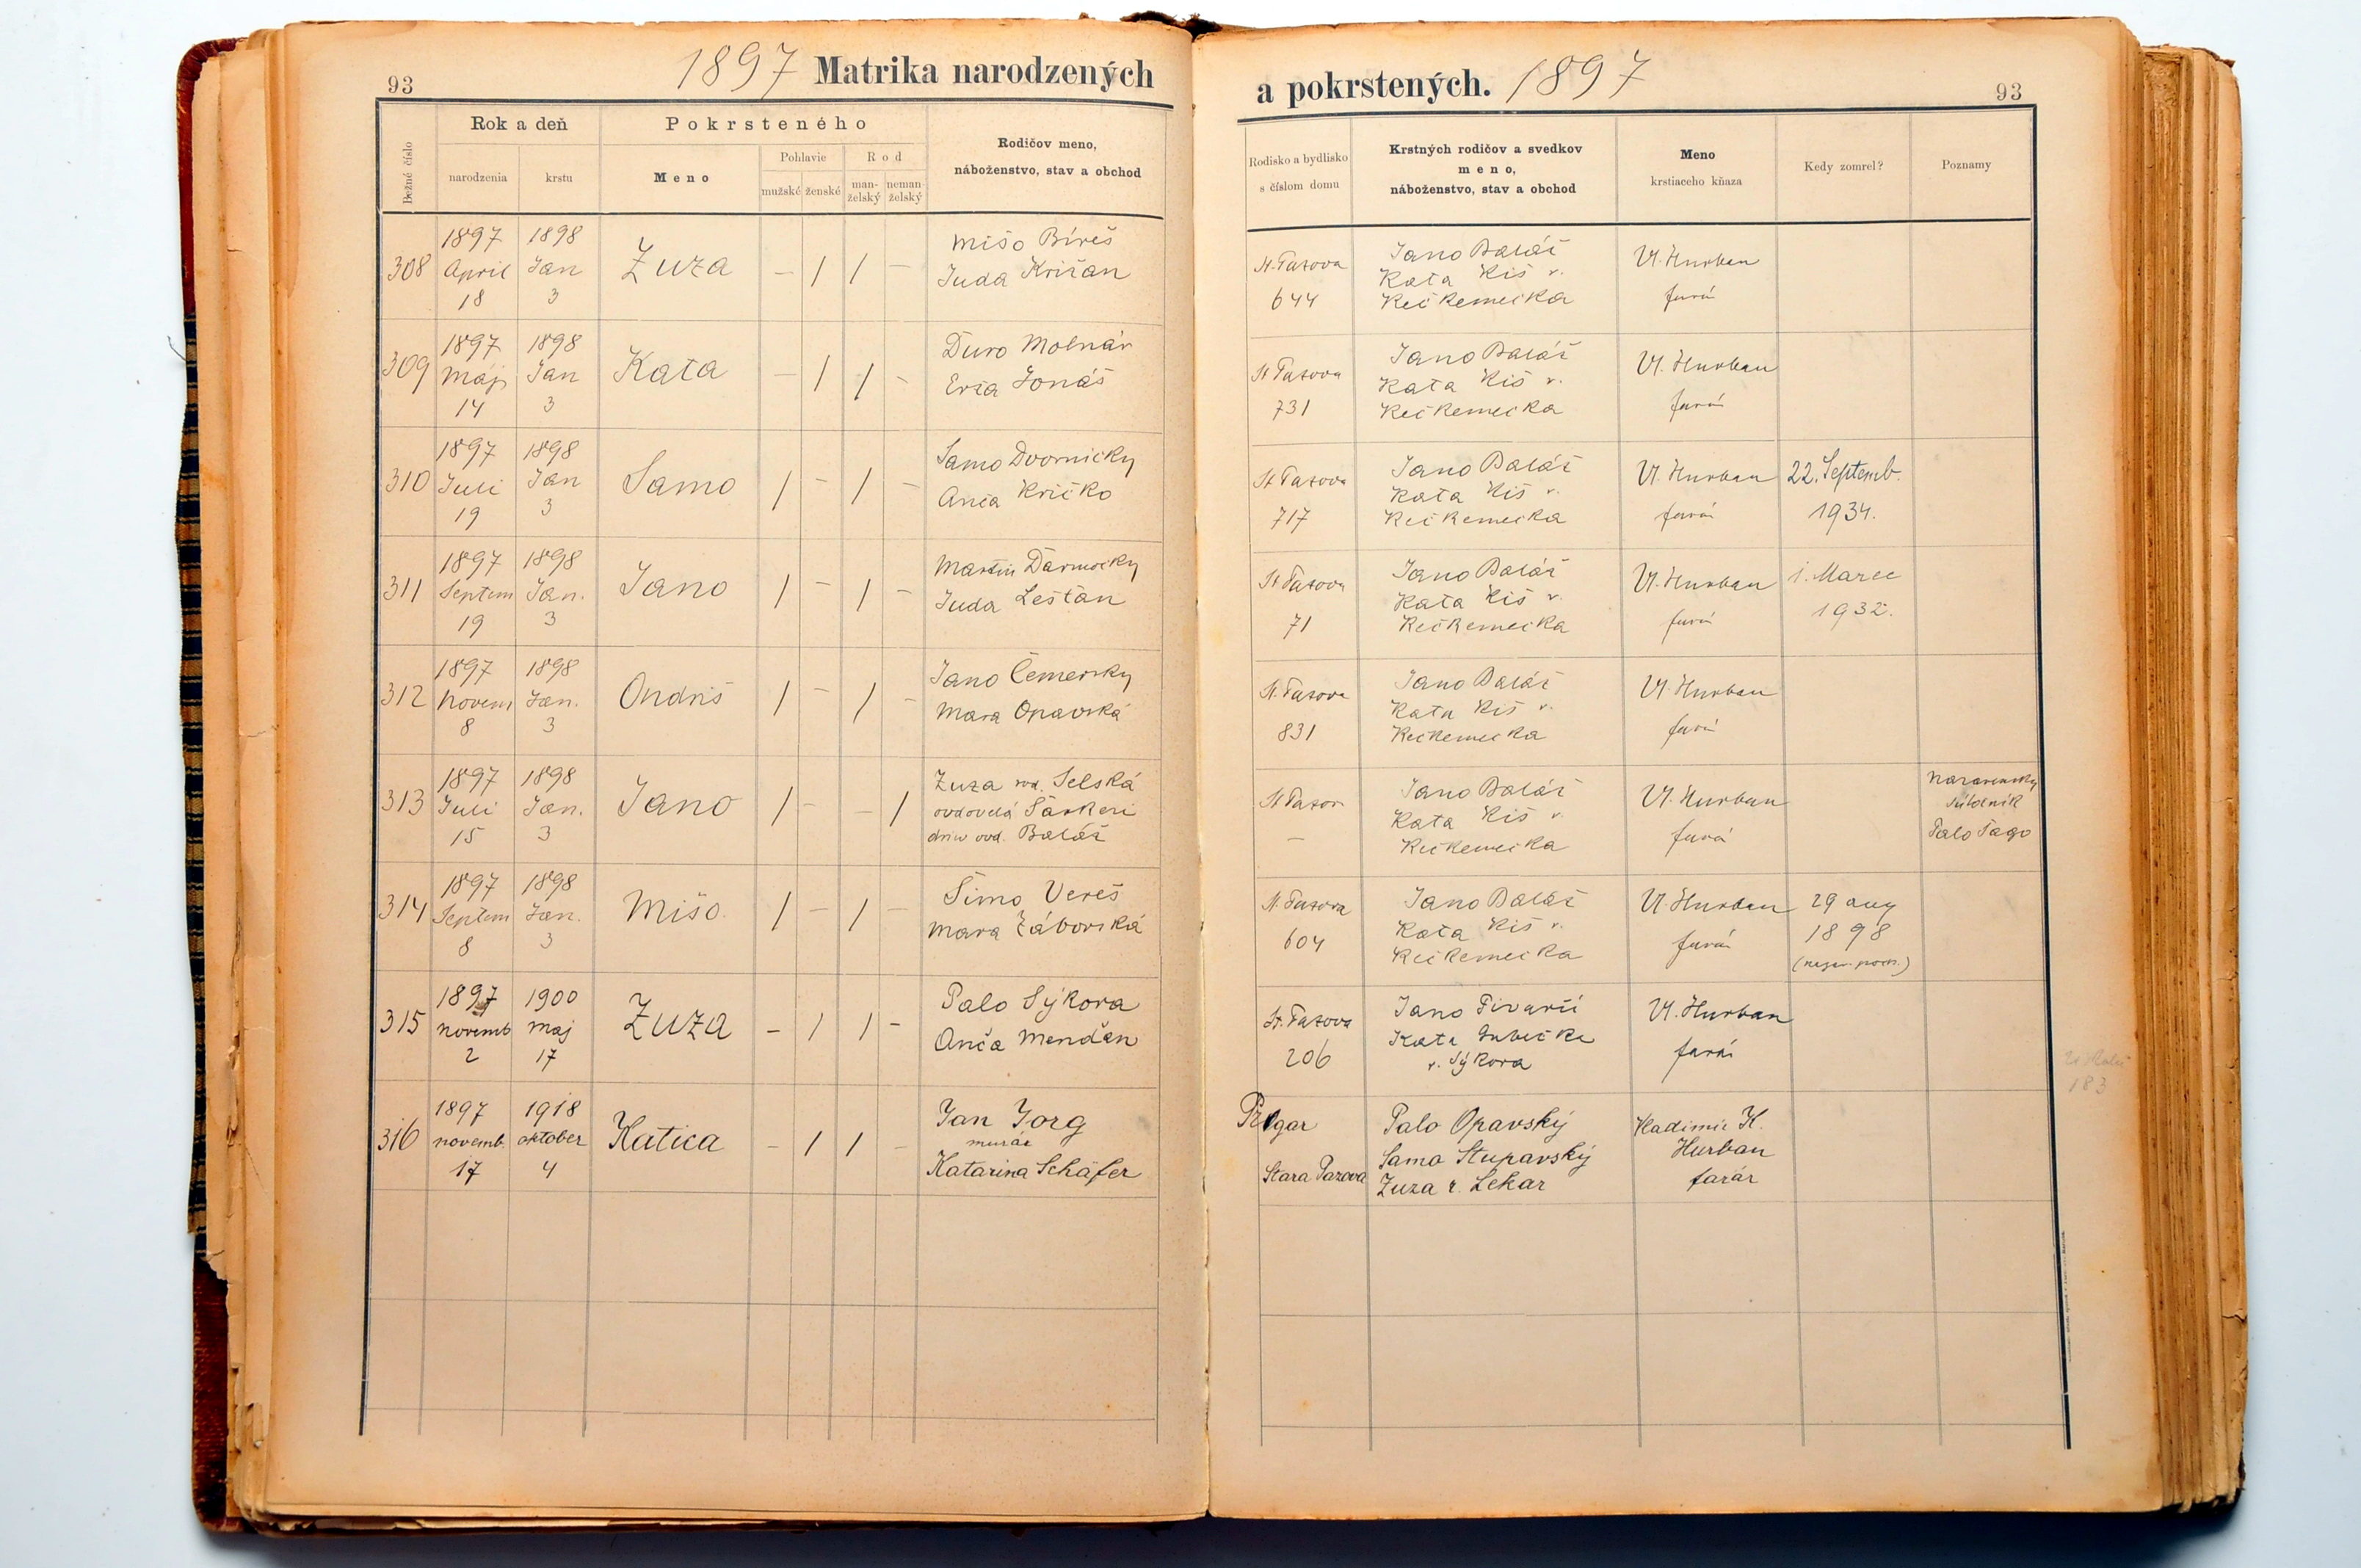 93
1897 Matrika narodzených
a pokrstených. 1897
93
Bežné číslo
Rok a deň
narodzenia
krstu
Pokrsteného
Meno
Pohlavie
mužské ženské
Rod
man-
želský
neman-
želský
Rodičov meno,
náboženstvo, stav a obchod
Rodisko a bydlisko
s číslom domu
Krstných rodičov a svedkov
meno,
náboženstvo, stav a obchod
Meno
krstiaceho kňaza
Kedy zomrel?
Poznamy
308
1897
April
18
1898
Jan
3
Zuza
– / / –
Mišo Bireš
Juda Križan
St. Pazova
644
Jano Baláž
Kata Kiš r.
Kečkemečka
Vl. Hurban
farár
309
1897
Máj
14
1898
Jan
3
Kata
– / / –
Ďuro Molnár
Erža Jonáš
St Pazova
731
Jano Baláž
Kata Kiš r.
Kečkemečka
Vl. Hurban
farár
310
1897
Juli
19
1898
Jan
3
Samo
/ – / –
Samo Dvornicky
Anča Kričko
St Pazova
717
Jano Baláž
Kata Kiš r.
Kečkemečka
Vl. Hurban
farár
22. Septemb.
1934.
311
1897
Septem
19
1898
Jan.
3
Jano
/ – / –
Martin Ďarmocky
Juda Leštan
St Pazova
71
Jano Baláž
Kata Kiš r.
Kečkemečka
Vl. Hurban
farár
1. Marec
1932.
312
1897
Novem
8
1898
Jan.
3
Ondriš
/ – / –
Jano Čemersky
Mara Opavská
St. Pazova
831
Jano Baláž
Kata Kiš r.
Kečkemečka
Vl. Hurban
farár
313
1897
Juli
15
1898
Jan.
3
Jano
/ – – /
Zuza rod. Selská
ovdovelá Šarkezi
ovd. Baláž
St Pazov
–
Jano Baláž
Kata Kiš r.
Kečkemečka
Vl. Hurban
farár
Palo Ďago
314
1897
Septem
8
1898
Jan.
3
Mišo
/ – / –
Šimo Vereš
Mara Záborská
St. Pazova
604
Jano Baláž
Kata Kiš r.
Kečkemečka
Vl. Hurban
farár
29 aug
1898
315
1897
Novemb
2
1900
Maj
17
Zuza
– / / –
Palo Sýkora
Anča Mendan
St. Pazova
206
Jano Pivarči
Kata
r. Sýkora
Vl. Hurban
farár
316
1897
novemb.
17
1918
oktober
4
Katica
– / / –
Jan Jorg
murár
Katarina Schäfer
Stara Pazova
Palo Opavský
Samo Stupavský
Zuza r. Lekar
Vladimir H.
Hurban
farár
183